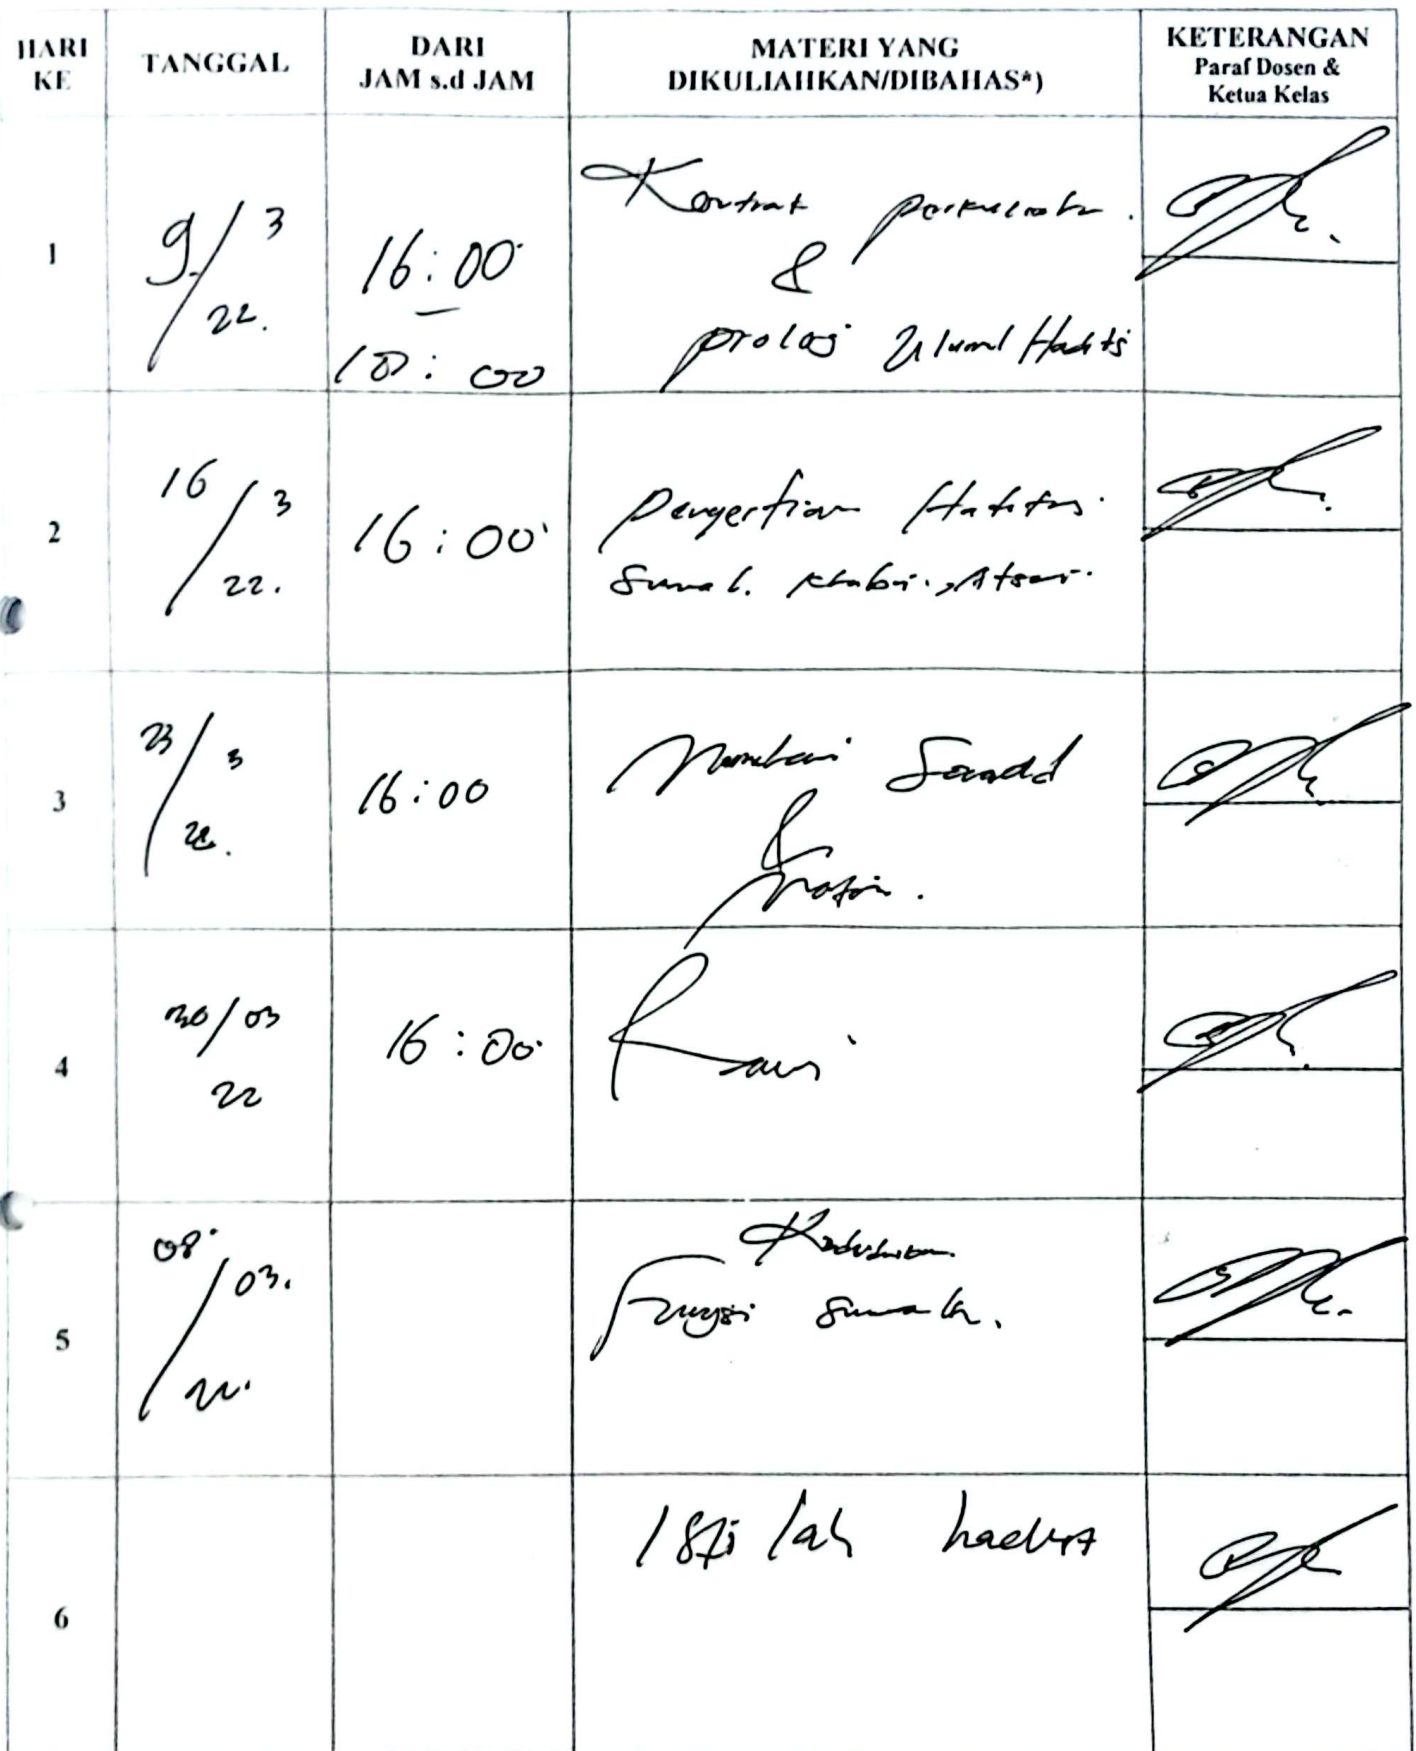 HARI KE
TANGGAL
DARI
JAM s.d JAM
MATERI YANG
DIKULIAHKAN/DIBAHAS*)
KETERANGAN
Paraf Dosen &
Ketua Kelas
1
9/3
22.
16:00
—
18:00
Kontrak perkuliahan.
&
prolog Ulumul Hadits
2
16/3
22.
16:00
Pengertian Hadits
Sunah. Khabar, Atsar.
3
23/3
22.
16:00
Sanad
&
Matan.
4
30/03
22
16:00
Rawi
5
08/03.
22.
Kedudukan
Fungsi Sunnah.
6
Istilah hadist